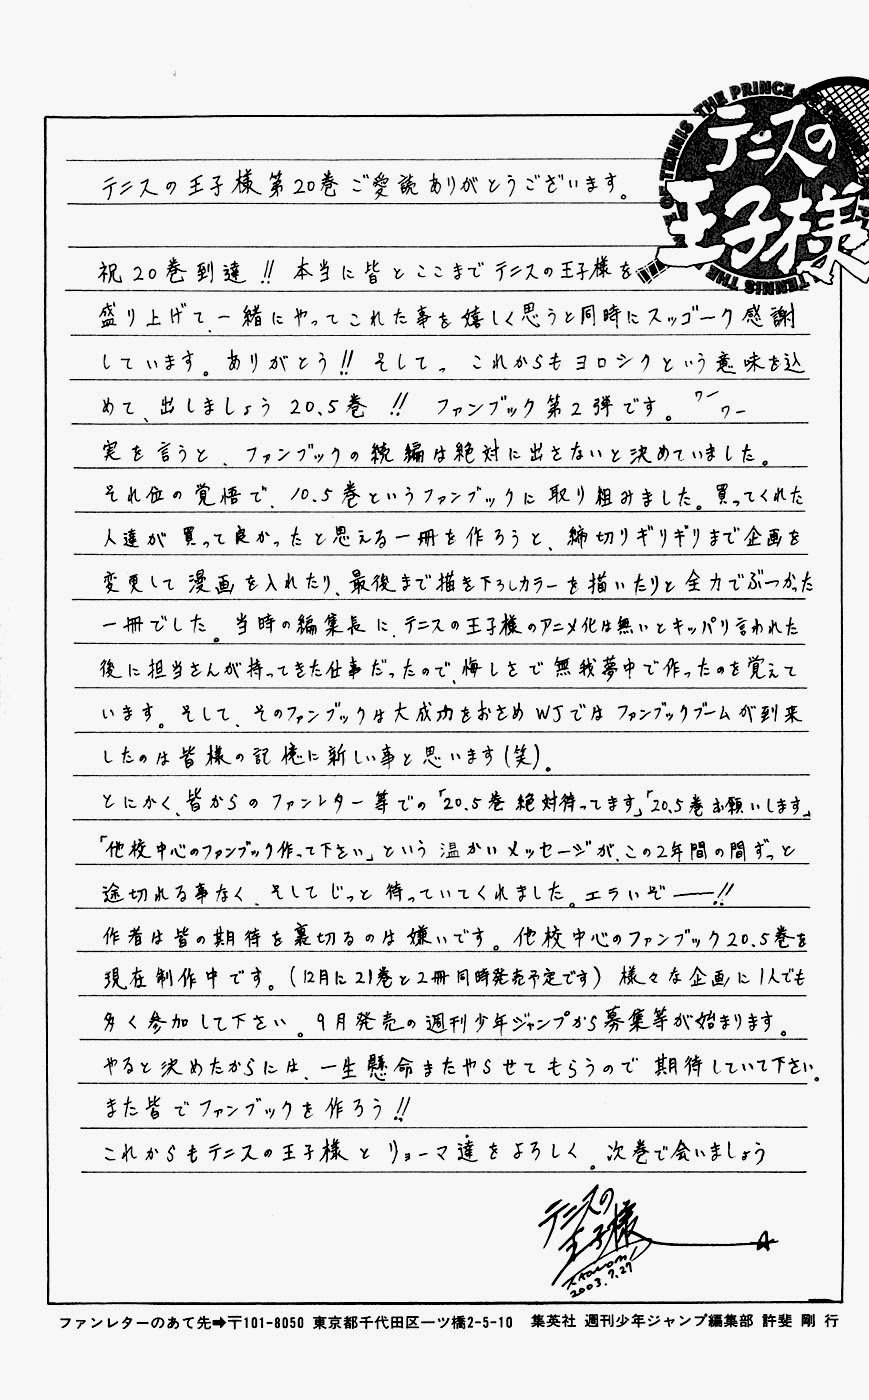 THE PRINCE OF TENNIS THE PRINCE OF TENNIS
テニスの
王子様
テニスの王子様第20巻ご愛読ありがとうございます。
祝20巻到達!! 本当に皆とここまでテニスの王子様を
盛り上げて、一緒にやってこれた事を嬉しく思うと同時にスッゴーク感謝
しています。ありがとう!! そして、これからもヨロシクという意味を込
めて、出しましょう20.5巻!! ファンブック第2弾です。ワーワー
実を言うと、ファンブックの続編は絶対に出さないと決めていました。
それ位の覚悟で、10.5巻というファンブックに取り組みました。買ってくれた
人達が買って良かったと思える一冊を作ろうと、締切りギリギリまで企画を
変更して漫画を入れたり、最後まで描き下ろしカラーを描いたりと全力でぶつかった
一冊でした。当時の編集長に、テニスの王子様のアニメ化は無いとキッパリ言われた
後に担当さんが持ってきた仕事だったので、悔しさで無我夢中で作ったのを覚えて
います。そして、そのファンブックは大成功をおさめWJではファンブックブームが到来
したのは皆様の記憶に新しい事と思います(笑)。
とにかく、皆からのファンレター等での「20.5巻絶対待ってます」「20.5巻お願いします」
「他校中心のファンブック作って下さい」という温かいメッセージが、この2年間の間ずっと
途切れる事なく、そしてじっと待っていてくれました。エラいぞ――!!
作者は皆の期待を裏切るのは嫌いです。他校中心のファンブック20.5巻を
現在制作中です。(12月に21巻と2冊同時発売予定です) 様々な企画に1人でも
多く参加して下さい。9月発売の週刊少年ジャンプから募集等が始まります。
やると決めたからには、一生懸命またやらせてもらうので期待していて下さい。
また皆でファンブックを作ろう!!
これからもテニスの王子様とリョーマ達をよろしく。次巻で会いましょう
テニスの
王子様
2003.7.27
ファンレターのあて先➡〒101-8050 東京都千代田区一ツ橋2-5-10 集英社 週刊少年ジャンプ編集部 許斐 剛 行